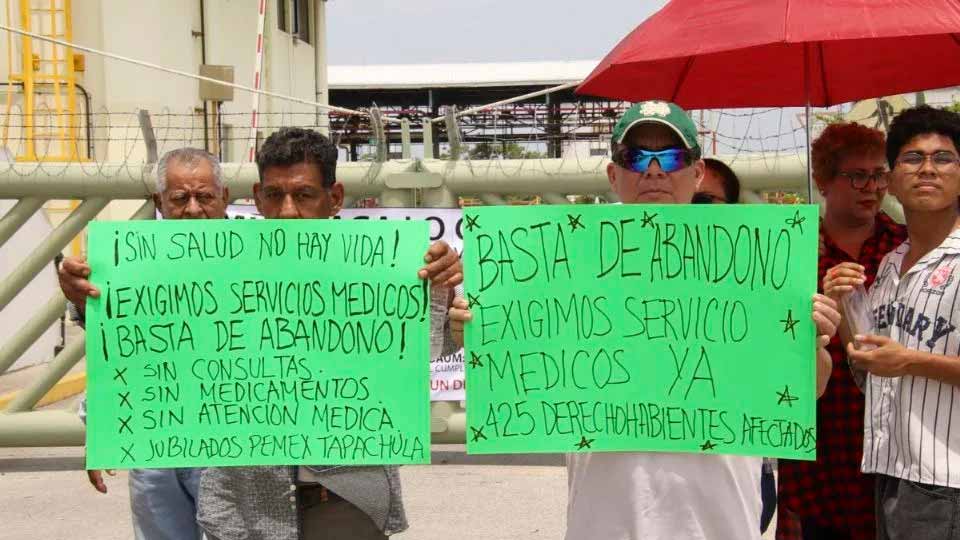 ¡SIN SALUD NO HAY VIDA!
¡EXIGIMOS SERVICIOS MEDICOS!
¡BASTA DE ABANDONO!
X SIN CONSULTAS.
X SIN MEDICAMENTOS
X SIN ATENCION MEDICA
X JUBILADOS PEMEX TAPACHULA
BASTA DE ABANDONO
EXIGIMOS SERVICIO
MEDICOS YA
425 DERECHOHABIENTES AFECTADOS
UN DI